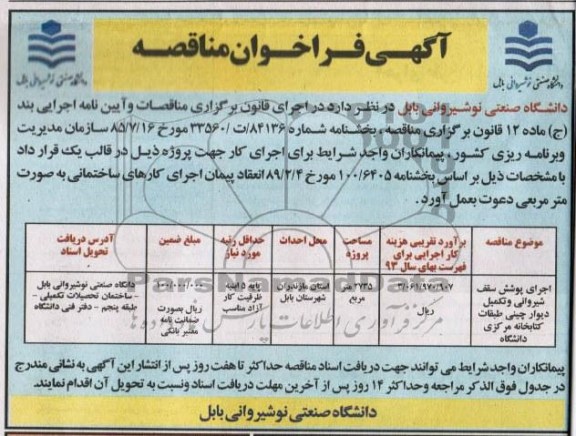 آگهی فراخوان مناقصه
دانشگاه صنعتی نوشیروانی بابل
دانشگاه صنعتی نوشیروانی بابل در نظر دارد در اجرای قانون برگزاری مناقصات و آیین نامه اجرایی بند
(ج) ماده ۱۲ قانون برگزاری مناقصه، بخشنامه شماره ۸۴۱۳۶/ت/۳۳۵۶۰ مورخ ۸۵/۷/۱۶ سازمان مدیریت
وبرنامه ریزی کشور، پیمانکاران واجد شرایط برای اجرای کار جهت پروژه ذیل در قالب یک قرار داد
با مشخصات ذیل بر اساس بخشنامه ۱۰۰/۶۴۰۵ مورخ ۸۹/۲/۴ انعقاد پیمان اجرای کارهای ساختمانی به صورت
متر مربعی دعوت بعمل آورد.
موضوع مناقصه
برآورد تقریبی هزینه کار اجرایی برای فهرست بهای سال ۹۳
مساحت پروژه
محل احداث
حداقل رتبه مورد نیاز
مبلغ تضمین
آدرس دریافت تحویل اسناد
اجرای پوشش سقف شیروانی وتکمیل دیوار چینی طبقات کتابخانه مرکزی دانشگاه
۳/۰۶۱/۹۷۰/۹۰۷ ریال
۲۷۳۵ متر مربع
استان مازندران شهرستان بابل
پایه ۵ ابنیه ظرفیت کار آزاد مناسب
ریال بصورت ضمانت نامه معتبر بانکی
دانگاه صنعتی نوشیروانی بابل – ساختمان تحصیلات تکمیلی – طبقه پنجم – دفتر فنی دانشگاه
ParsNamadData
مرکز فرآوری اطلاعات پارس نماد داده ها
پیمانکاران واجد شرایط می توانند جهت دریافت اسناد مناقصه حداکثر تا هفت روز پس از انتشار این آگهی به نشانی مندرج
در جدول فوق الذکر مراجعه وحداکثر ۱۴ روز پس از آخرین مهلت دریافت اسناد ونسبت به تحویل آن اقدام نمایند.
دانشگاه صنعتی نوشیروانی بابل